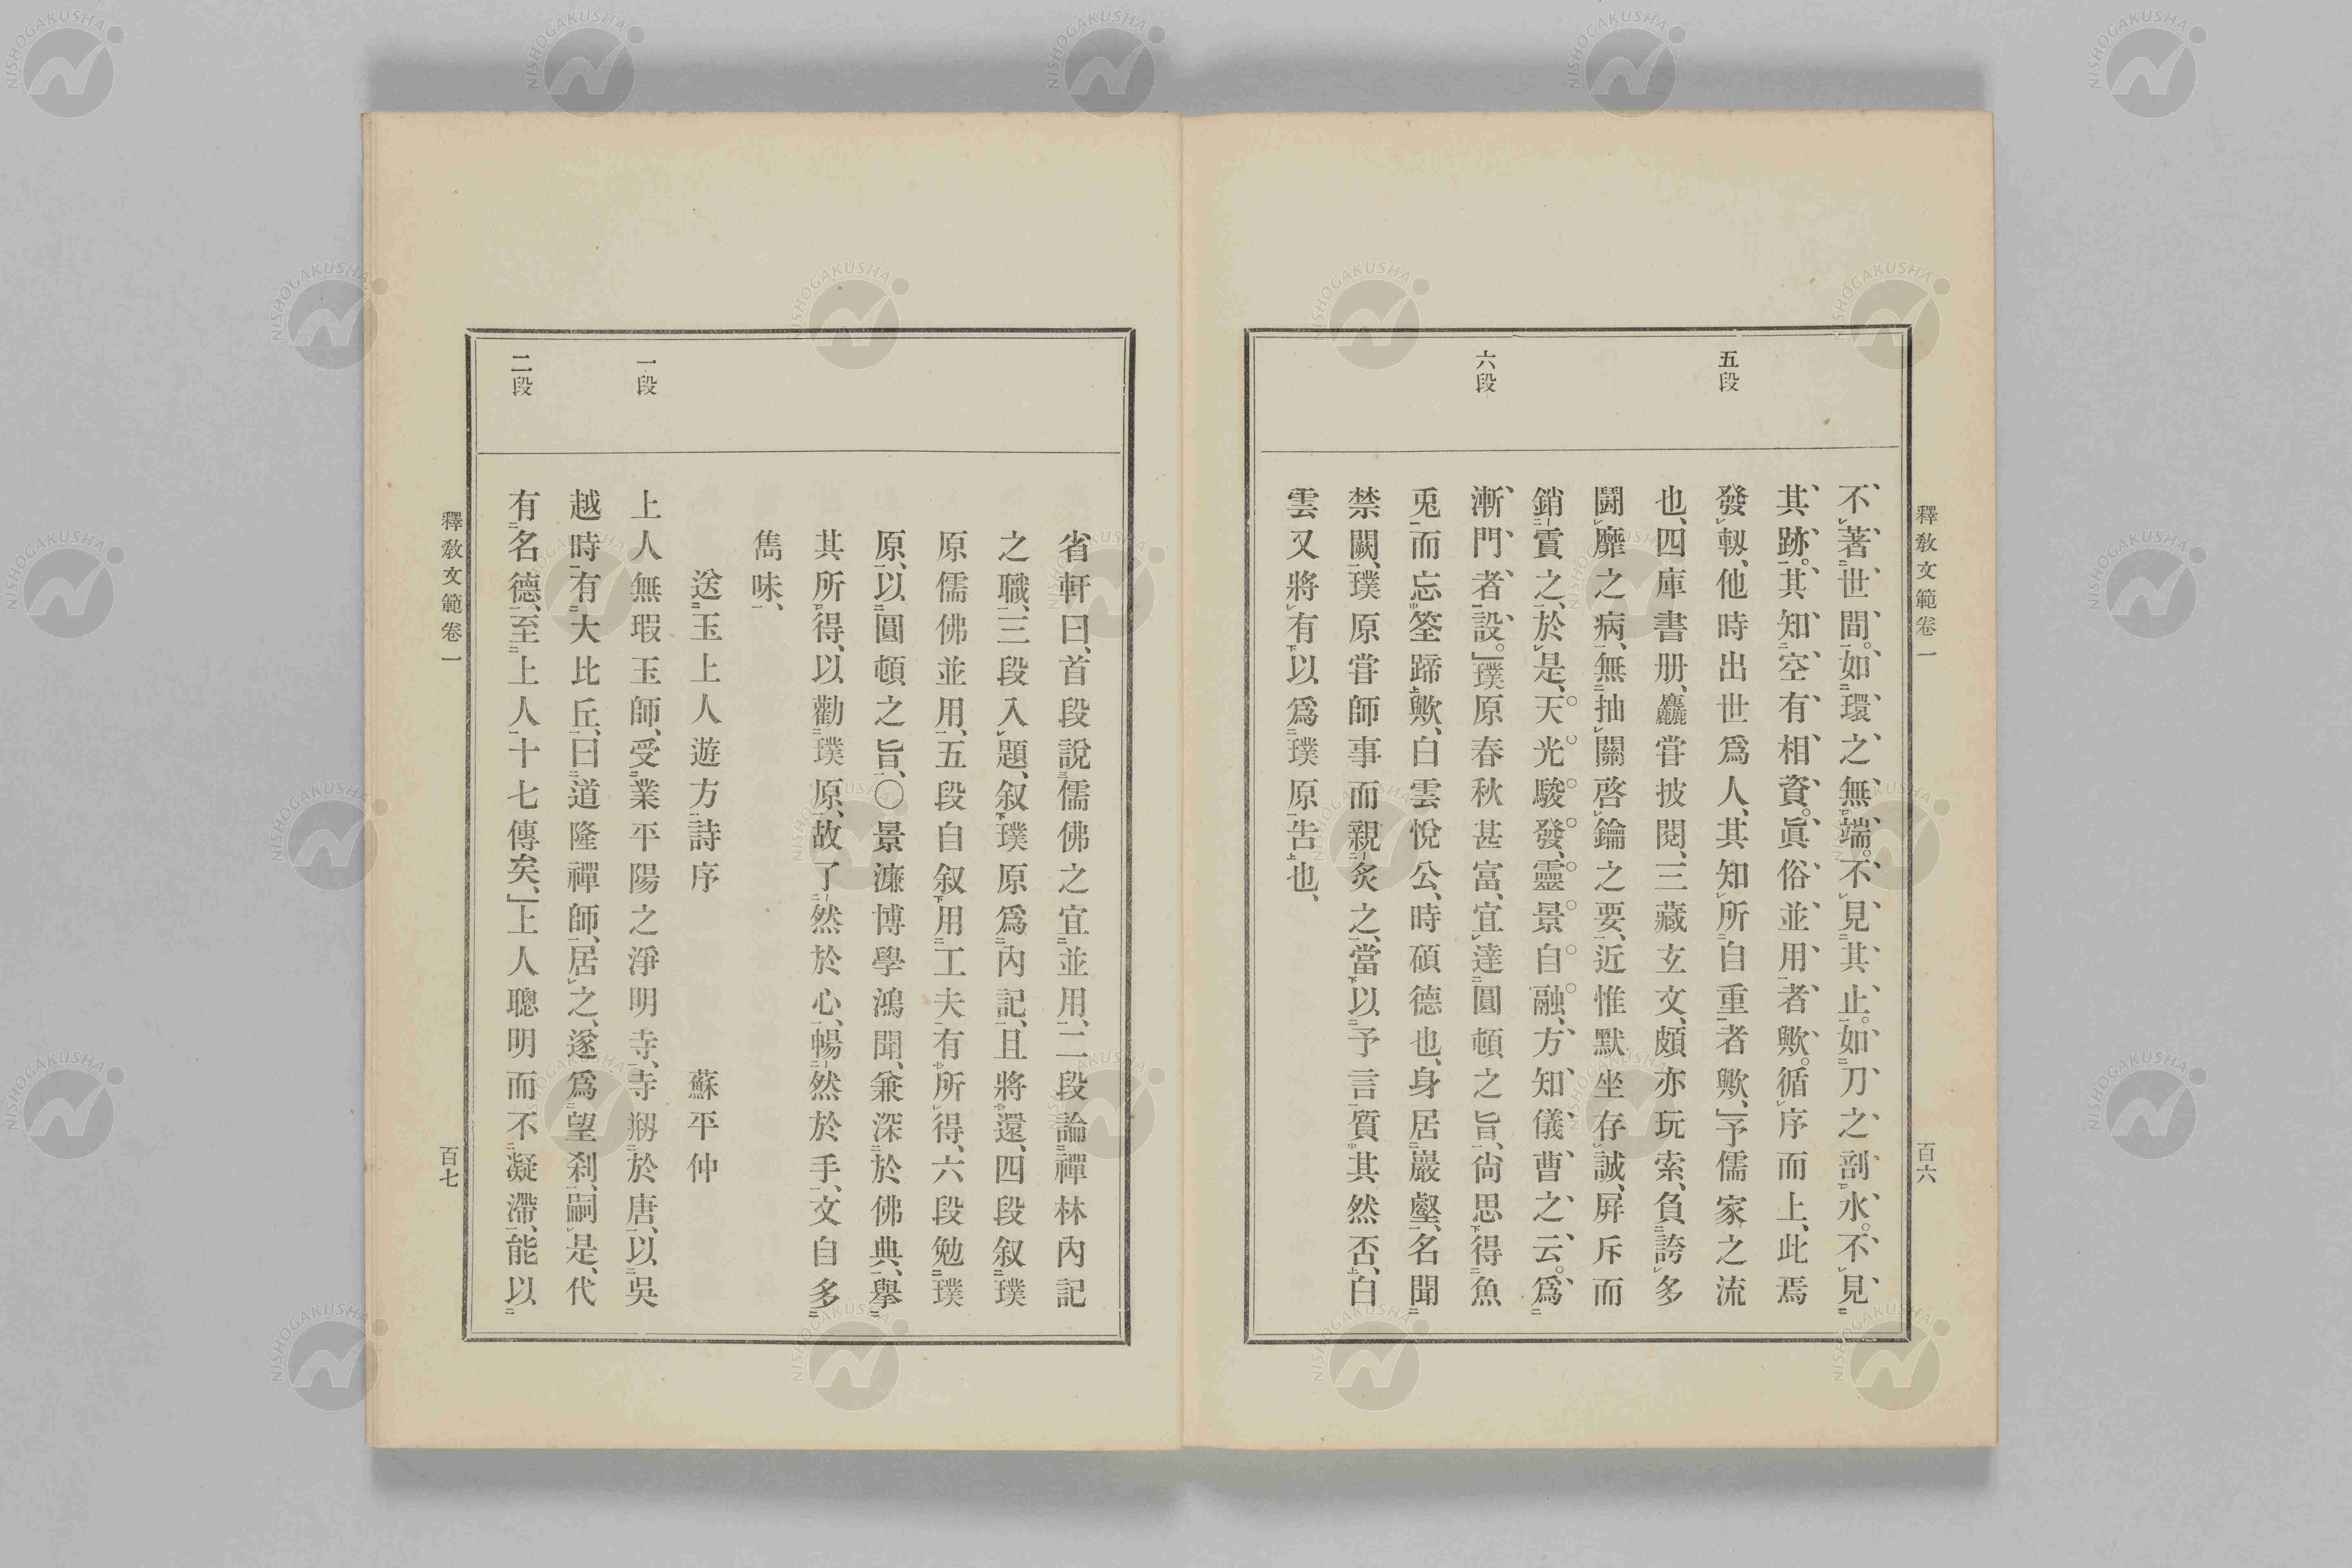 釋敎文範卷一
百六
五段
六段
不著世間。如環之無端。不見其止。如刀之剖水。不見
其跡。其知空有相資。眞俗並用者歟。循序而上、此焉
發軔、他時出世爲人、其知所自重者歟、」予儒家之流
也、四庫書册、麤甞披閱、三藏玄文、頗亦玩索、負誇多
鬭靡之病、無抽關啓鑰之要、近惟默坐存誠、屛斥而
銷霣之、於是、天光駿發、靈景自融、方知儀曹之云。爲
漸門者設。」璞原春秋甚富、宜達圓頓之旨、尙思得魚
兎而忘筌蹄歟、白雲悅公、時碩德也、身居巖壑、名聞
禁闕、璞原甞師事而親炙之、當以予言質其然否、白
雲又將有以爲璞原告也、
省軒曰、首段說儒佛之宜並用、二段論禪林內記
之職、三段入題、叙璞原爲內記、且將還、四段叙璞
原儒佛並用、五段自叙用工夫有所得、六段勉璞
原、以圓頓之旨、〇景濂博學鴻聞、兼深於佛典、擧
其所得、以勸璞原、故了然於心、暢然於手、文自多
雋味、
送玉上人遊方詩序 蘇平仲
上人無瑕玉師、受業平陽之淨明寺、寺剏於唐、以吳
越時有大比丘、曰道隆禪師、居之、遂爲望刹、嗣是、代
有名德、至上人十七傳矣、」上人聰明而不凝滯、能以
一段
二段
釋敎文範卷一
百七
NISHOGAKUSHA